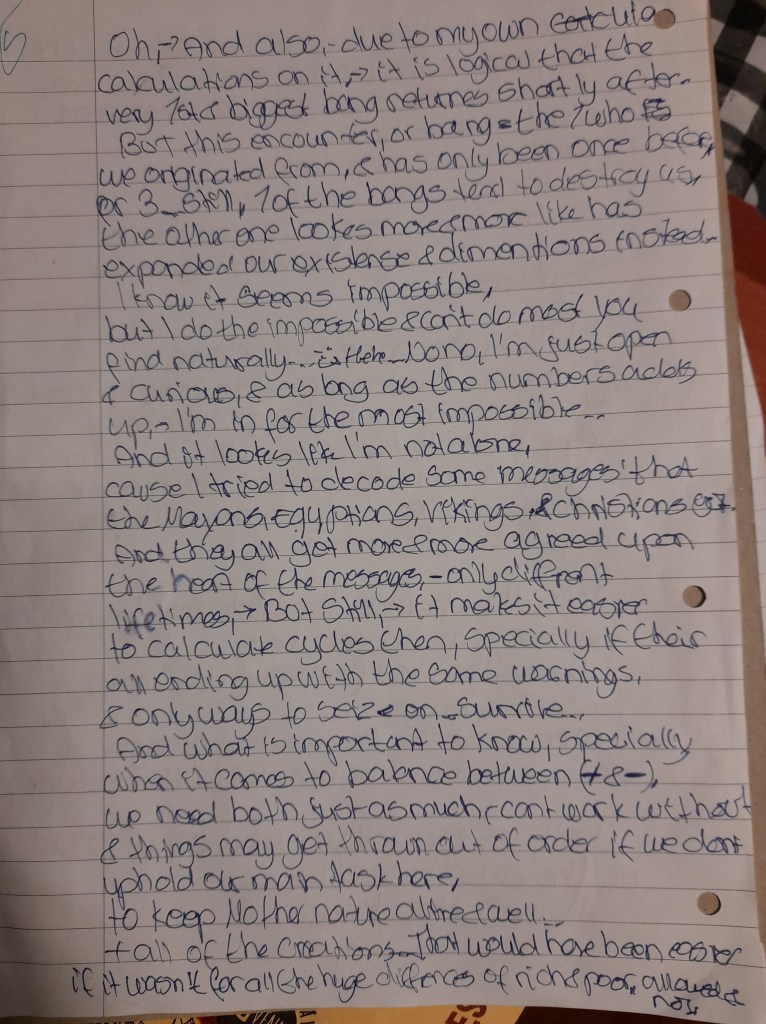 Oh,→ And also,- due to my own
calculations on it,→ it is logical that the
very 1st & biggest bang returnes shortly after.
But this encounter, or bang = the 1 who
we originated from, & has only been once before,
or 3_still, 1 of the bangs tend to destroy us,
the other one lookes more & more like has
expanded our existense & dimentions instead.
I know it seems impossible,
but I do the impossible & can't do most you
find naturally... Nono, I'm just open
& curious, & as long as the numbers adds
up,- I'm in for the most impossible...
And it lookes like I'm not alone,
cause I tried to decode some messages that
the Mayans, Egyptians, Vikings, & Christians
And they all get more & more agreed upon
the heart of the messages,- only different
lifetimes,→ Bot still,→ it makes it easier
to calculate cycles then, specially if their
all ending up with the same warnings,
& only ways to seize on_survive...
And what is important to know, specially
when it comes to balence between (+&-),
we need both, just as much, cant work without
& things may get thrown out of order if we dont
uphold our main task here,
to keep Mother nature well...
+ all of the Creations_That would have been easier
if it wasn't for all the huge diffences of rich & poor,
now,